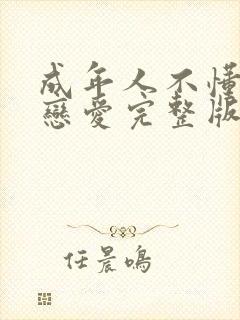 成年人不懂
戀愛完整版
任晨鳴